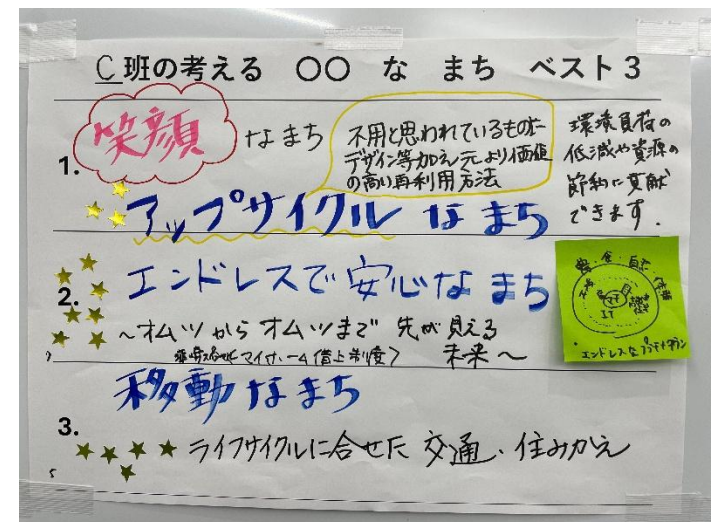 C班の考える 〇〇 な まち ベスト3
1.
笑顔 なまち
不用と思われているものに
デザイン等加え元より価値
の高い再利用方法
環境負荷の
低減や資源の
節約に貢献
できます.
アップサイクル な まち
2.
エンドレスで安心なまち
〜オムツから オムツまで 先が見える
マイホーム借上制度〉 未来〜
農・食・自然
IT
エンドレスなプラチナタウン
3.
移動なまち
ライフサイクルに合せた 交通・住みかえ